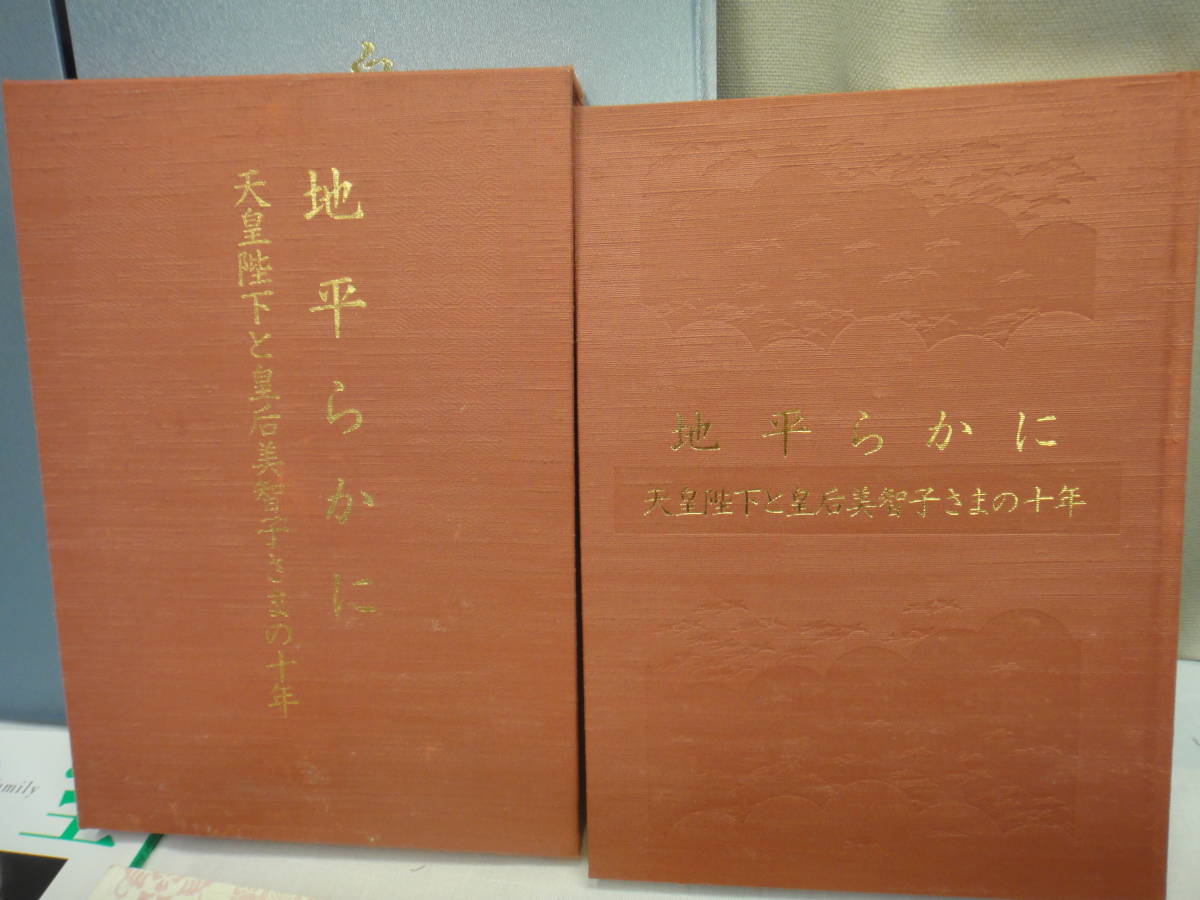 地平らかに
天皇陛下と皇后美智子さまの十年
地平らかに
天皇陛下と皇后美智子さまの十年
ら
amily